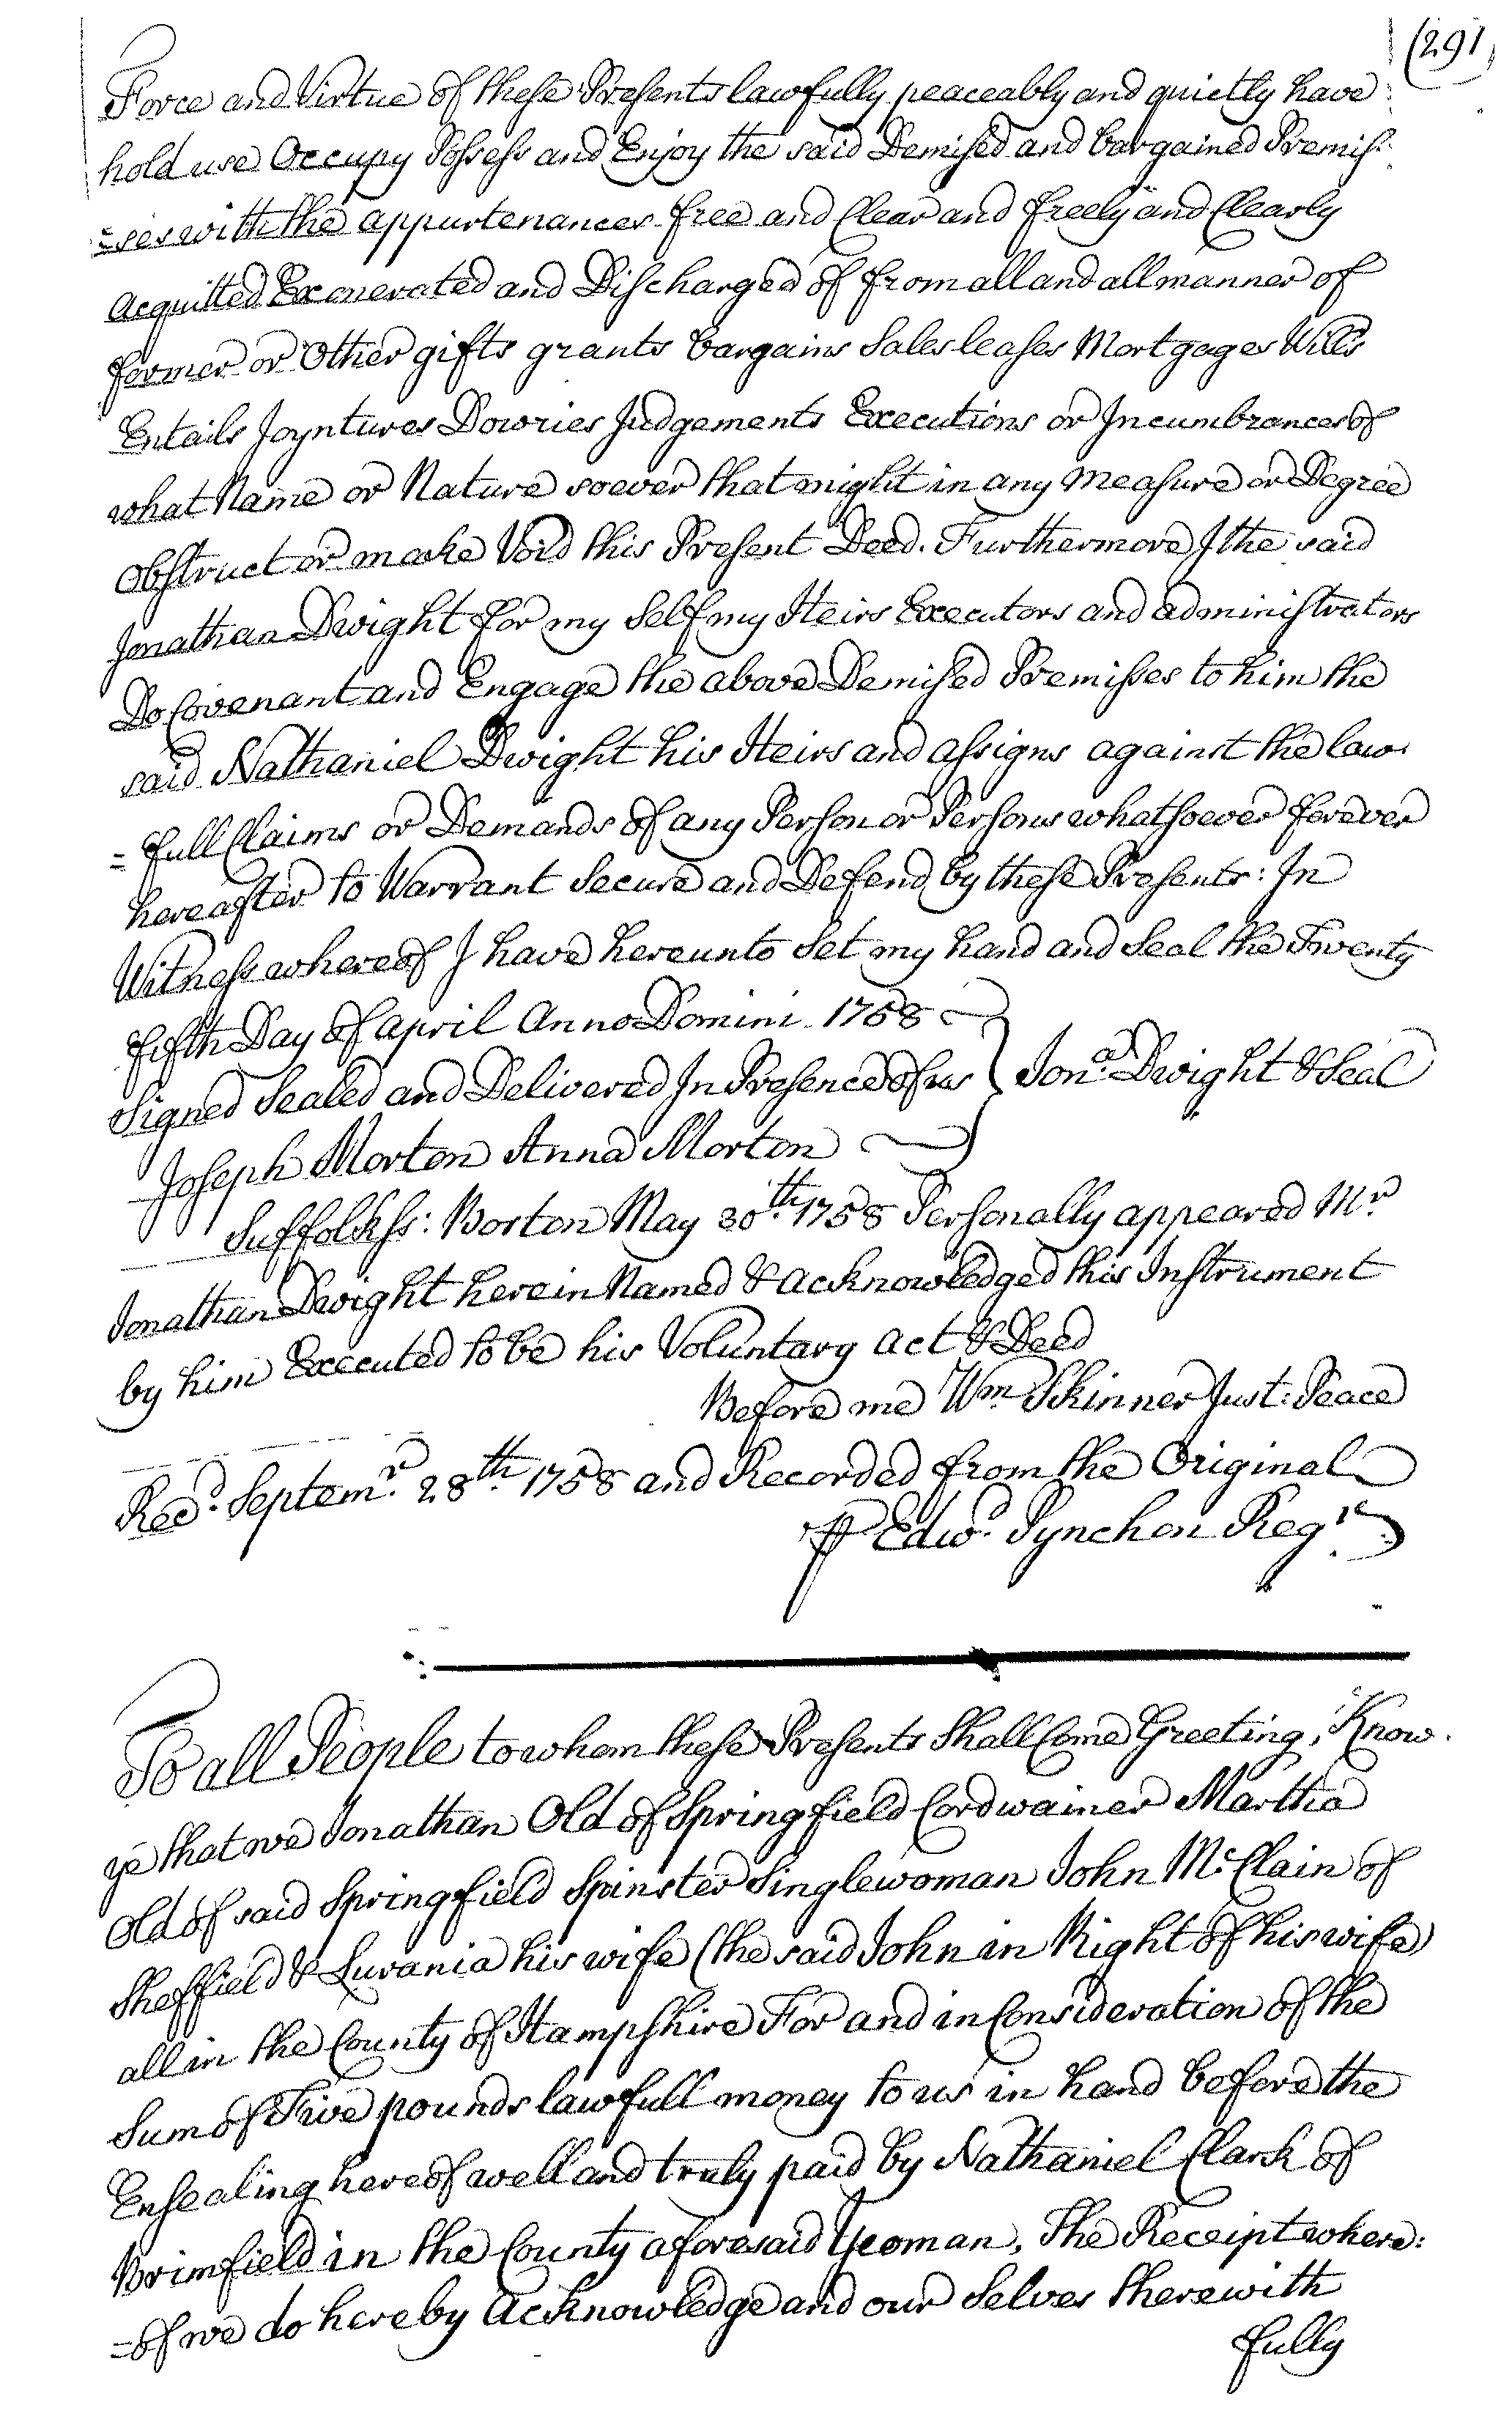 (291)
Force and Virtue of these Presents lawfully peaceably and quietly have
hold use Occupy Possess and Enjoy the said Demised and bargained Premis:
=ses with the appurtenances free and Clear and freely and Clearly
Acquitted Exonerated and Discharged of from all and all manner of
former or Other gifts grants bargains Sales leases Mortgages Wills
Entails Joyntures Dowries Judgements Executions or Incumbrances of
what Name or Nature soever that might in any measure or Degree
Obstruct or make Void this Present Deed. Furthermore I the said
Jonathan Dwight for my Self my Heirs Executors and administrators
Do Covenant and Engage the above Demised Premisses to him the
said Nathaniel Dwight his Heirs and assigns against the law:
=full Claims or Demands of any Person or Persons whatsoever forever
hereafter to Warrant Secure and Defend by these Presents: In
Witness whereof I have hereunto Set my hand and Seal the Twenty
fifth Day of April Anno Domini 1758
Signed Sealed and Delivered In Presence of us } Jon.a Dwight & Seal
Joseph Morton Anna Morton
Suffolk Ss: Boston May 30th. 1758 Personally appeared Mr
Jonathan Dwight herein Named & Acknowledged this Instrument
by him Executed to be his Voluntary act & Deed
Before me Wm Skinner Just: Peace
Recd. Septemr. 28th. 1758 and Recorded from the Original
P Edwd. Pynchon Regr
To all People to whom these Presents Shall Come Greeting, Know
ye that we Jonathan Old of Springfield Cordwainer Martha
Old of said Springfield Spinster Singlewoman John McClain of
Sheffield & Luvania his wife (the said John in Right of his wife)
all in the County of Hampshire For and in Consideration of the
Sum of Five pounds lawfull money to us in hand before the
Ensealing hereof well and truly paid by Nathaniel Clark of
Brimfield in the County aforesaid Yeoman, The Receipt where:
=of we do hereby Acknowledge and our Selves therewith
fully